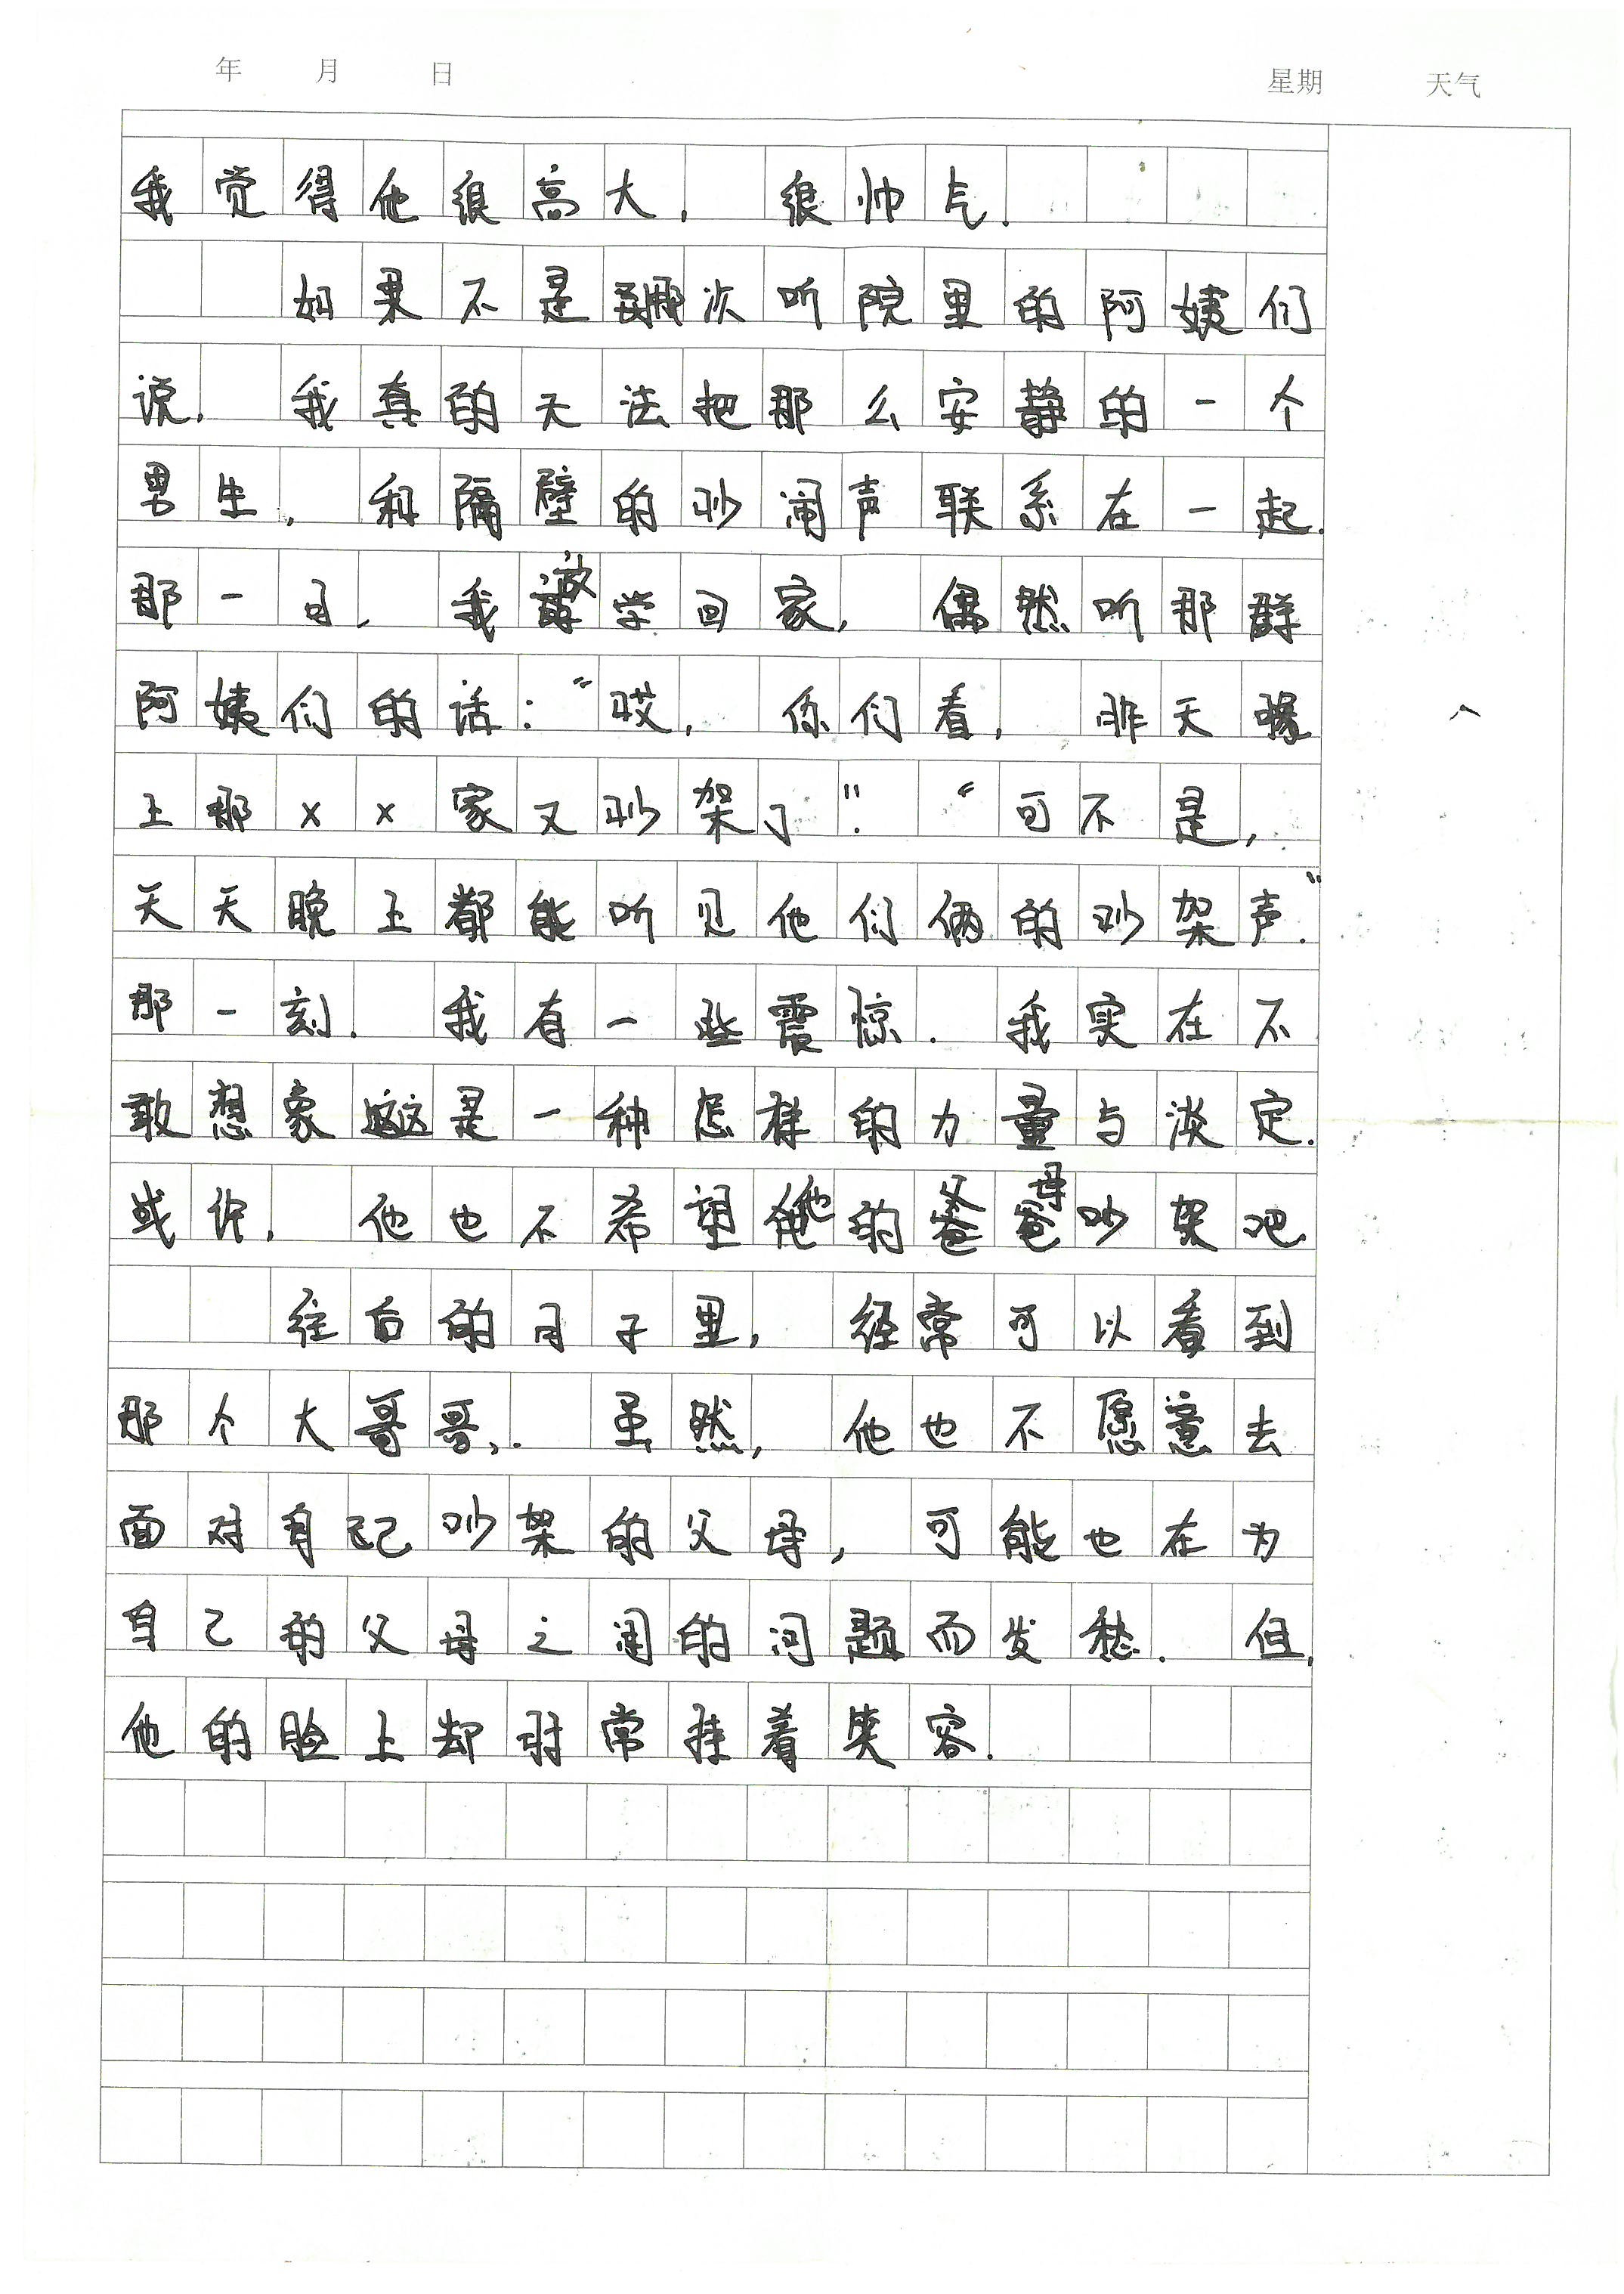 年 月 日 星期 天气
我觉得他很高大，很帅气.
如果不是那次听院里的阿姨们
说，我真的无法把那么安静的一个
男生，和隔壁的吵闹声联系在一起.
那一日，我放学回家，偶然听那群
阿姨们的话：“哎，你们看，昨天晚
上那××家又吵架了”.“可不是，
天天晚上都能听见他们俩的吵架声.”
那一刻.我有一些震惊.我实在不
敢想象这是一种怎样的力量与淡定.
或许，他也不希望他的父母吵架吧
往后的日子里，经常可以看到
那个大哥哥，.虽然，他也不愿意去
面对自己吵架的父母，可能也在为
自己的父母之间的问题而发愁.但，
他的脸上却时常挂着笑容.